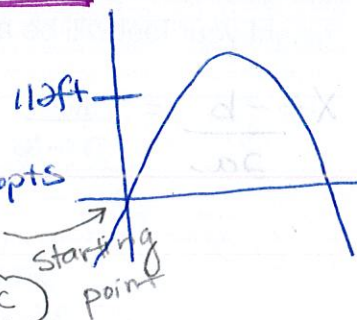 112ft
opts
starting
point
c